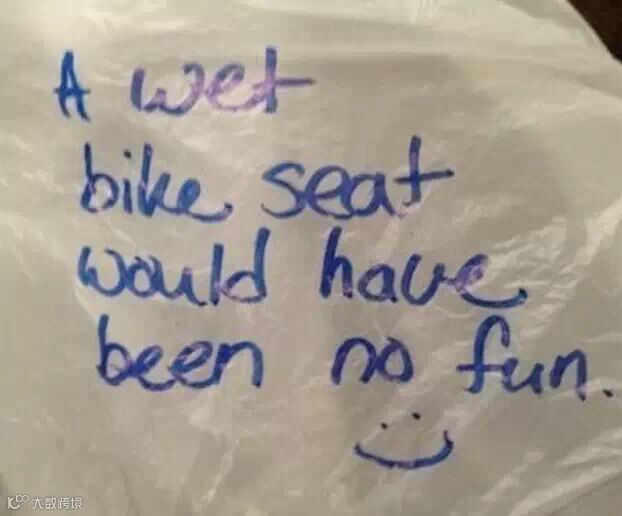 A wet
bike seat
would have
been no fun.
大数跨境